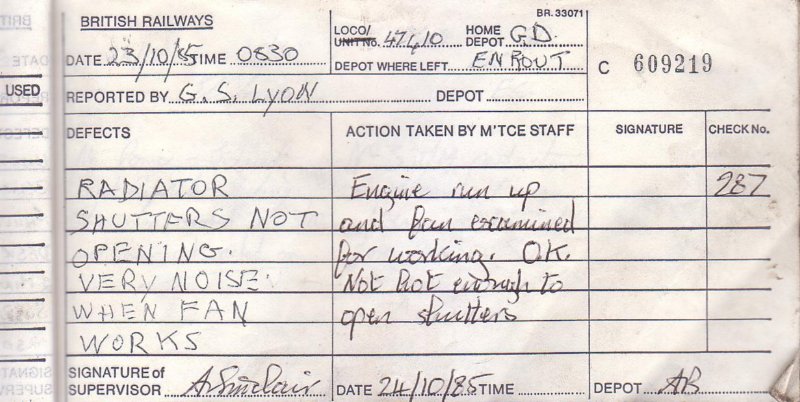 BR. 33071
BRITISH RAILWAYS
LOCO/ UNIT No. 47410 HOME DEPOT G.D.
DATE 23/10/85 TIME 0830
DEPOT WHERE LEFT EN ROUT
C 609219
USED
REPORTED BY G. S. LYON DEPOT
DEFECTS ACTION TAKEN BY M'TCE STAFF SIGNATURE CHECK No.
RADIATOR Engine run up 287
SHUTTERS NOT and fan examined
OPENING. for working. O.K.
VERY NOISE. Not hot enough to
WHEN FAN open shutters
WORKS
SIGNATURE of
SUPERVISOR A Sinclair DATE 24/10/85 TIME DEPOT AB